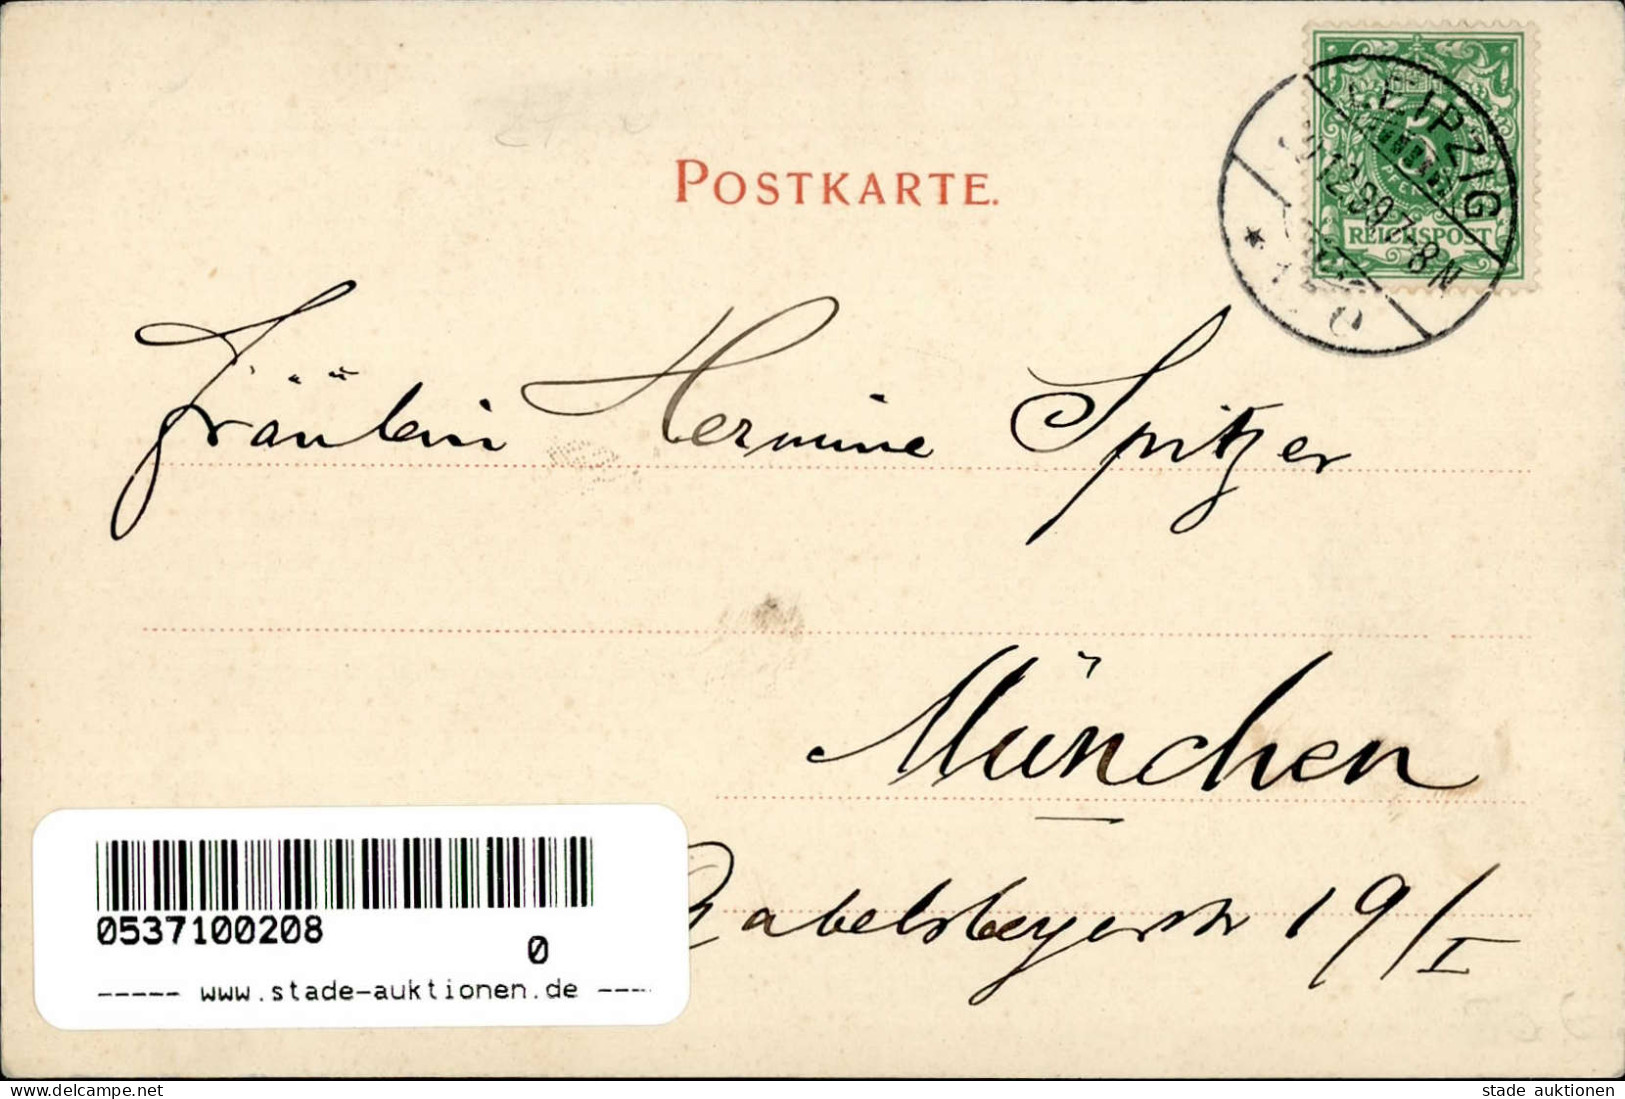 POSTKARTE.
LEIPZIG
12.99.7-8N
5
REICHSPOST
Fräulein Hermine Spitzer
München
Rabelsbergerstr 19/I
0537100208
0
----- www.stade-auktionen.de ----
www.delcampe.net
stade auktionen